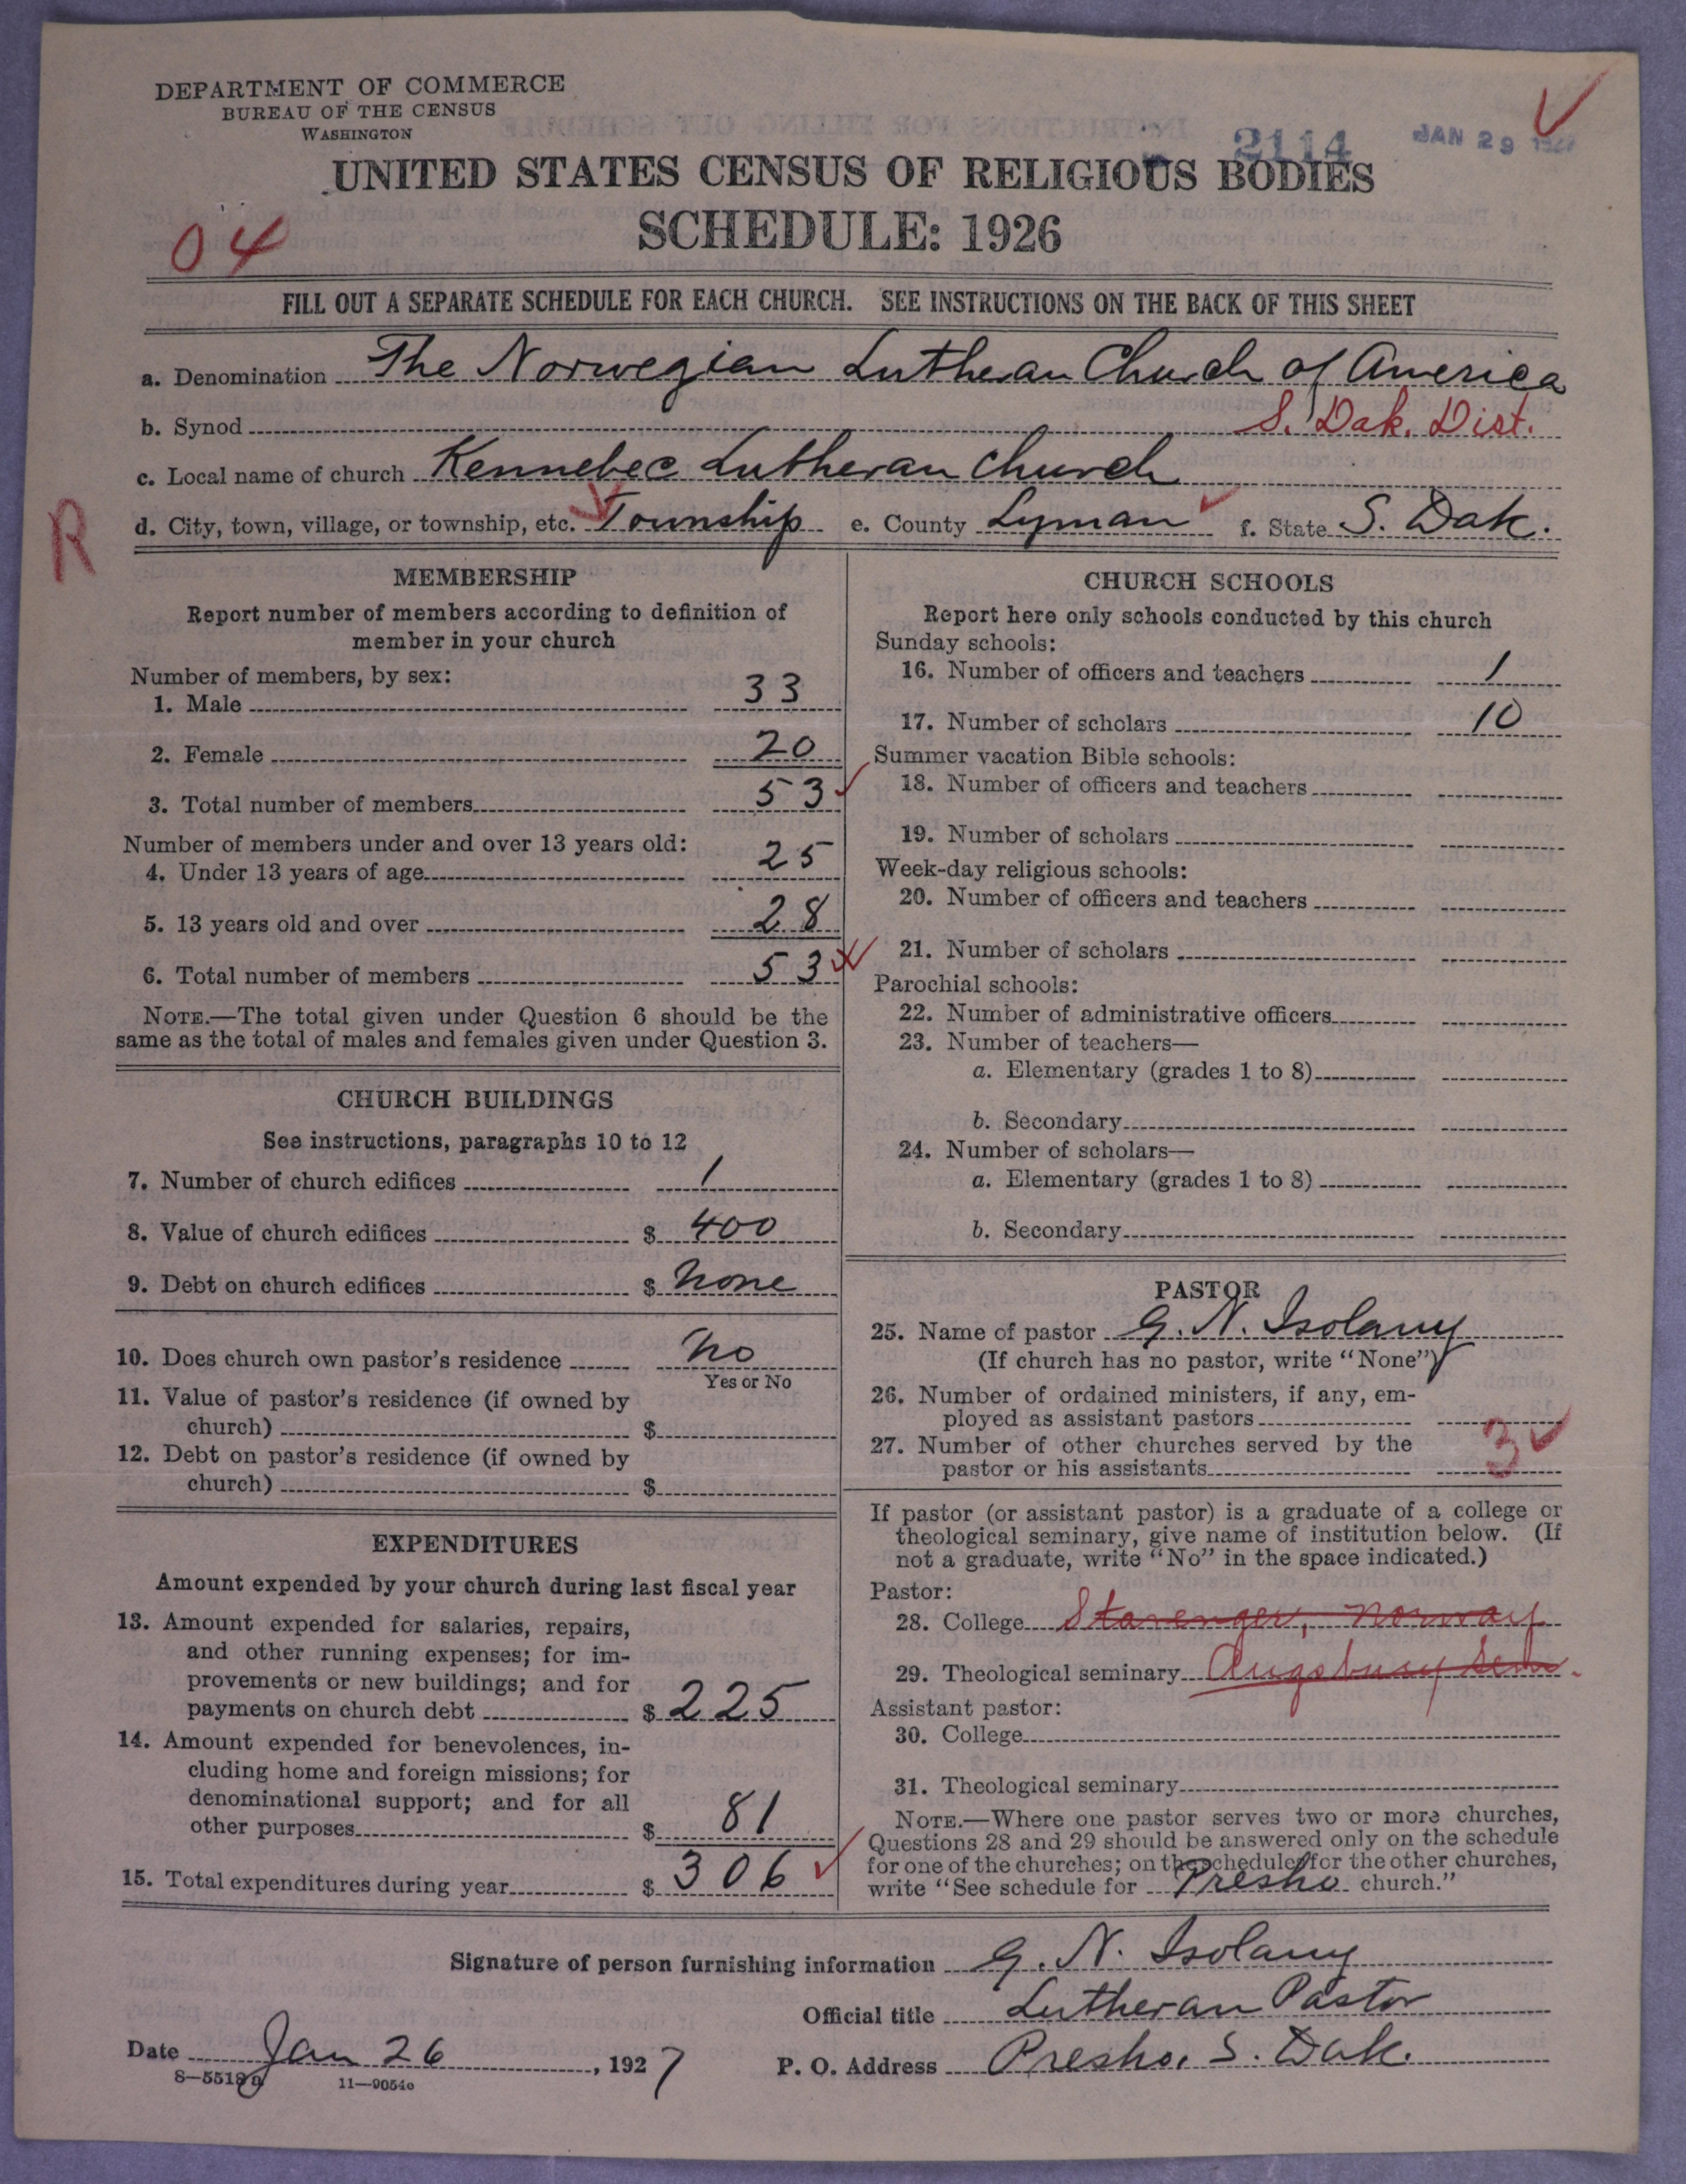 DEPARTMENT OF COMMERCE
BUREAU OF THE CENSUS
WASHINGTON
2114
JAN 29 1927
UNITED STATES CENSUS OF RELIGIOUS BODIES
SCHEDULE: 1926
04
FILL OUT A SEPARATE SCHEDULE FOR EACH CHURCH. SEE INSTRUCTIONS ON THE BACK OF THIS SHEET
a. Denomination The Norwegian Lutheran Church of America
b. Synod S. Dak. Dist.
c. Local name of church Kennebec Lutheran Church
R
d. City, town, village, or township, etc. Township e. County Lyman f. State S. Dak.
MEMBERSHIP
Report number of members according to definition of
member in your church
Number of members, by sex:
1. Male 33
2. Female 20
3. Total number of members 53
Number of members under and over 13 years old:
4. Under 13 years of age 25
5. 13 years old and over 28
6. Total number of members 53
NOTE.—The total given under Question 6 should be the
same as the total of males and females given under Question 3.
CHURCH BUILDINGS
See instructions, paragraphs 10 to 12
7. Number of church edifices 1
8. Value of church edifices $ 400
9. Debt on church edifices $ None
10. Does church own pastor's residence No
Yes or No
11. Value of pastor's residence (if owned by
church) $
12. Debt on pastor's residence (if owned by
church) $
EXPENDITURES
Amount expended by your church during last fiscal year
13. Amount expended for salaries, repairs,
and other running expenses; for im-
provements or new buildings; and for
payments on church debt $ 225
14. Amount expended for benevolences, in-
cluding home and foreign missions; for
denominational support; and for all
other purposes $ 81
15. Total expenditures during year $ 306
CHURCH SCHOOLS
Report here only schools conducted by this church
Sunday schools:
16. Number of officers and teachers 1
17. Number of scholars 10
Summer vacation Bible schools:
18. Number of officers and teachers
19. Number of scholars
Week-day religious schools:
20. Number of officers and teachers
21. Number of scholars
Parochial schools:
22. Number of administrative officers
23. Number of teachers—
a. Elementary (grades 1 to 8)
b. Secondary
24. Number of scholars—
a. Elementary (grades 1 to 8)
b. Secondary
PASTOR
25. Name of pastor G. N. Isolany
(If church has no pastor, write "None")
26. Number of ordained ministers, if any, em-
ployed as assistant pastors
27. Number of other churches served by the
pastor or his assistants 3
If pastor (or assistant pastor) is a graduate of a college or
theological seminary, give name of institution below. (If
not a graduate, write "No" in the space indicated.)
Pastor:
28. College Stavenger, Norway
29. Theological seminary Augsburg Sem.
Assistant pastor:
30. College
31. Theological seminary
NOTE.—Where one pastor serves two or more churches,
Questions 28 and 29 should be answered only on the schedule
for one of the churches; on the schedules for the other churches,
write "See schedule for Presho church."
Signature of person furnishing information G. N. Isolany
Official title Lutheran Pastor
Date Jan 26, 1927
P. O. Address Presho, S. Dak.
8—5518a
11—9054c